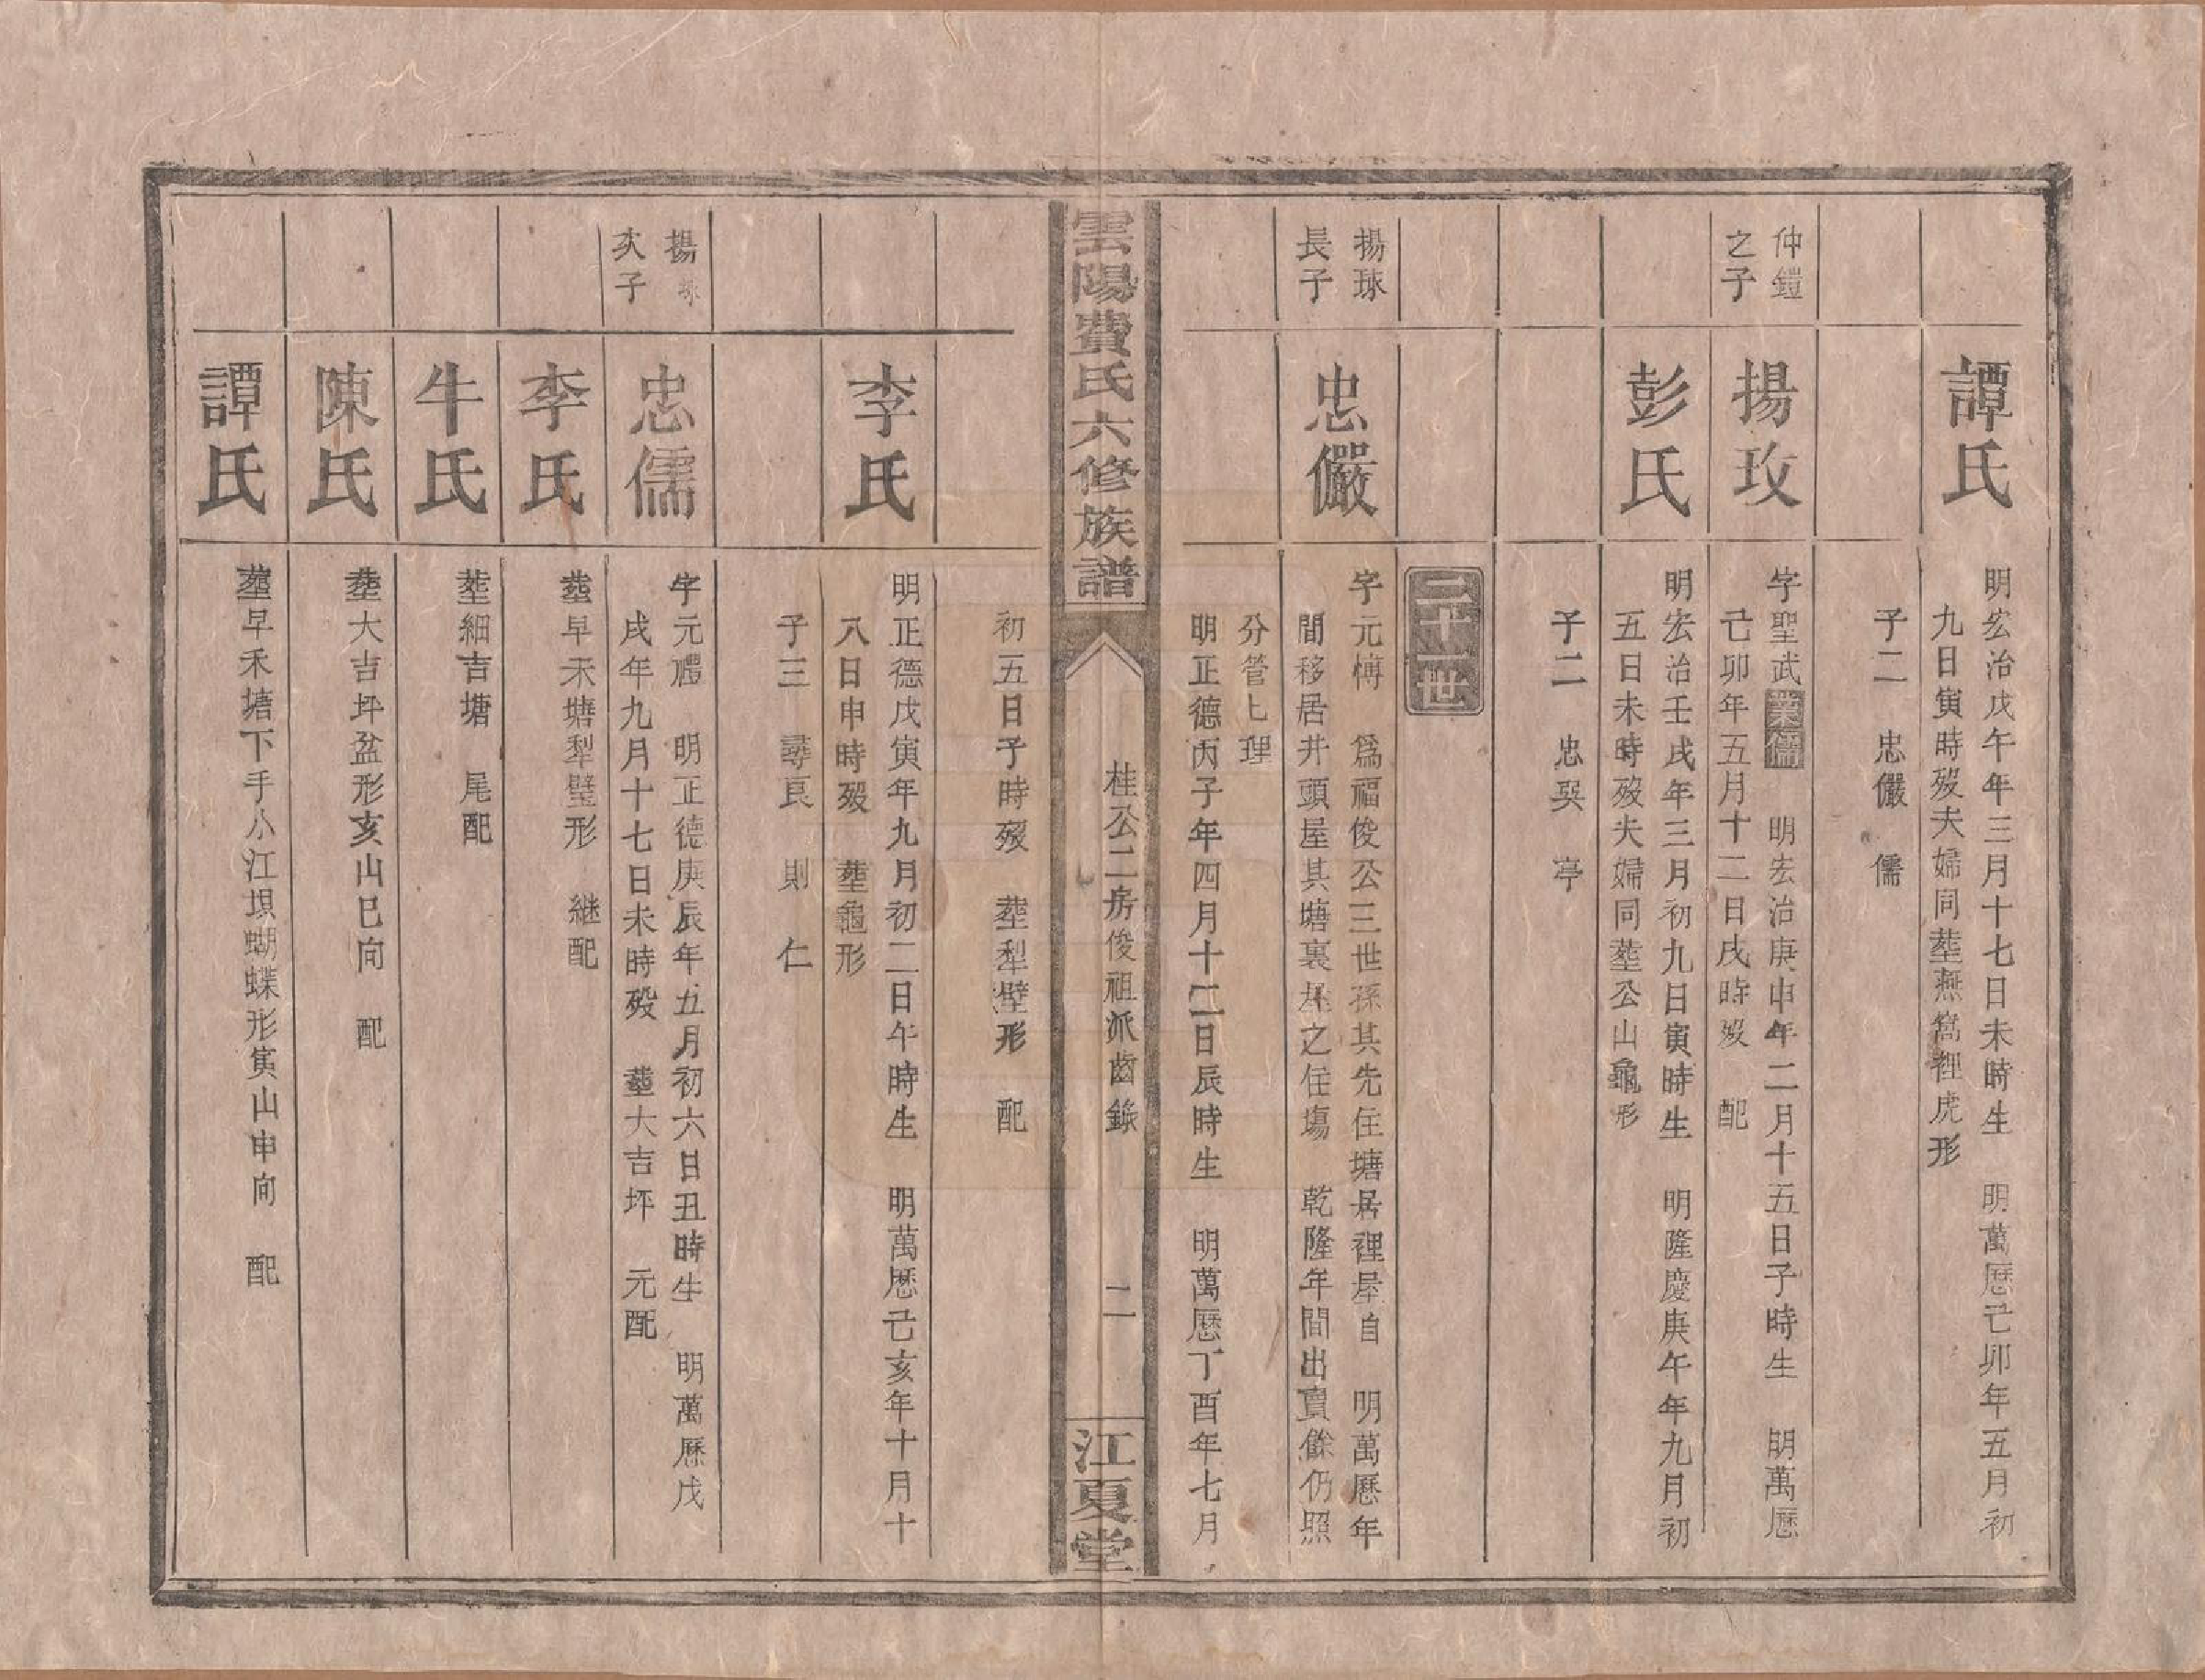 譚氏
明宏治戊午年三月十七日未時生　明萬歷己卯年五月初
九日寅時歿夫婦同塟燕窩裡虎形
子二　忠儼　儒
仲鎧
之子
揚玫
字聖武業儒　明宏治庚申年二月十五日子時生　明萬歷
己卯年五月十二日戌時歿　配
彭氏
明宏治壬戌年三月初九日寅時生　明隆慶庚午年九月初
五日未時歿夫婦同塟公山龜形
子二　忠㒶　亭
二十一世
揚球
長子
忠儼
字元愽　爲福俊公三世孫其先住塘居裡屋自　明萬歷年
間移居井頭屋其塘裏屋之住塲　乾隆年間出賣餘仍照
分管七理
明正德丙子年四月十二日辰時生　明萬歷丁酉年七月
雲陽費氏六修族譜
桂公二房俊祖派齒錄
二
江夏堂
初五日子時歿　塟犁壁形　配
李氏
明正德戊寅年九月初二日午時生　明萬歷己亥年十月十
八日申時歿　塟龜形
子三　尋良　則　仁
揚球
次子
忠儒
字元禮　明正德庚辰年五月初六日丑時生　明萬歷戊
戌年九月十七日未時歿　塟大吉坪　元配
李氏
塟早禾塘犁壁形　継配
牛氏
塟細吉塘　尾配
陳氏
塟大吉坪盆形亥山巳向　配
譚氏
塟早禾塘下手小江垻蝴蝶形寅山申向　配